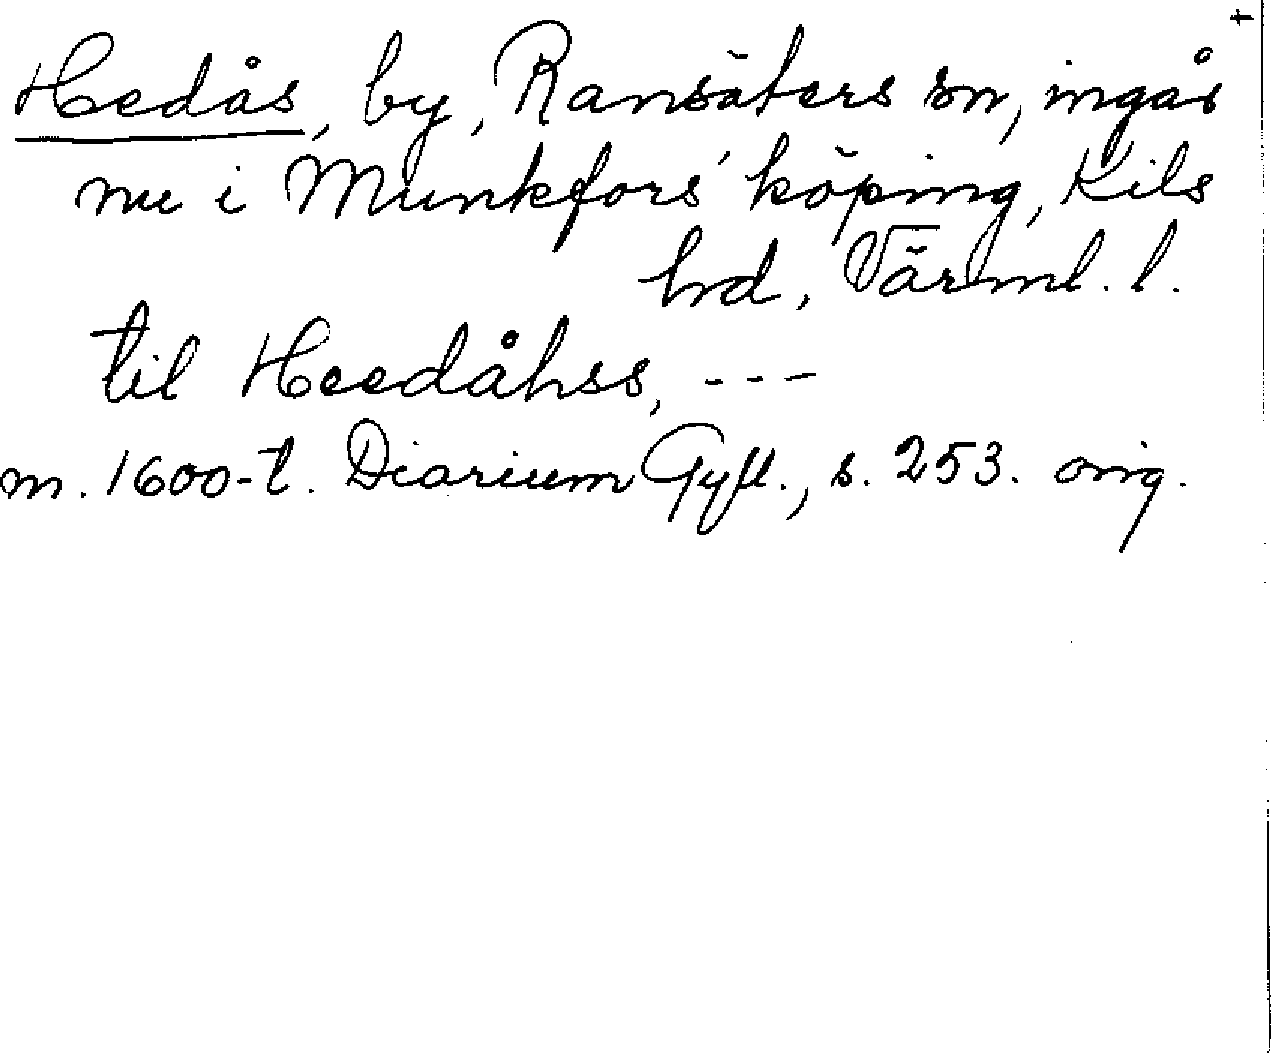 Hedås, by, Ransäters sn, ingår
nu i Munkfors' köping, Kils
hd, Värml. l.
til Heedåhss, ---
m. 1600-t. Diarium Gyll., s. 253. orig.